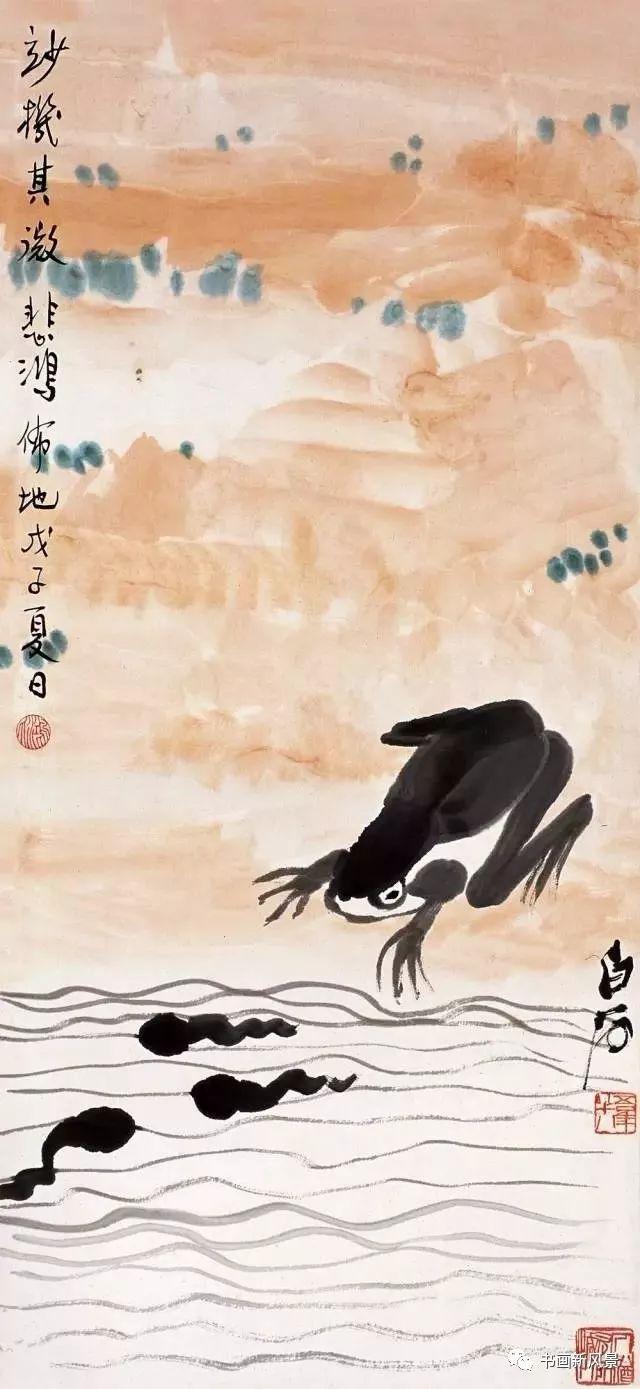 玅機其微悲鴻佈地戊子夏日
白石
书画新风景